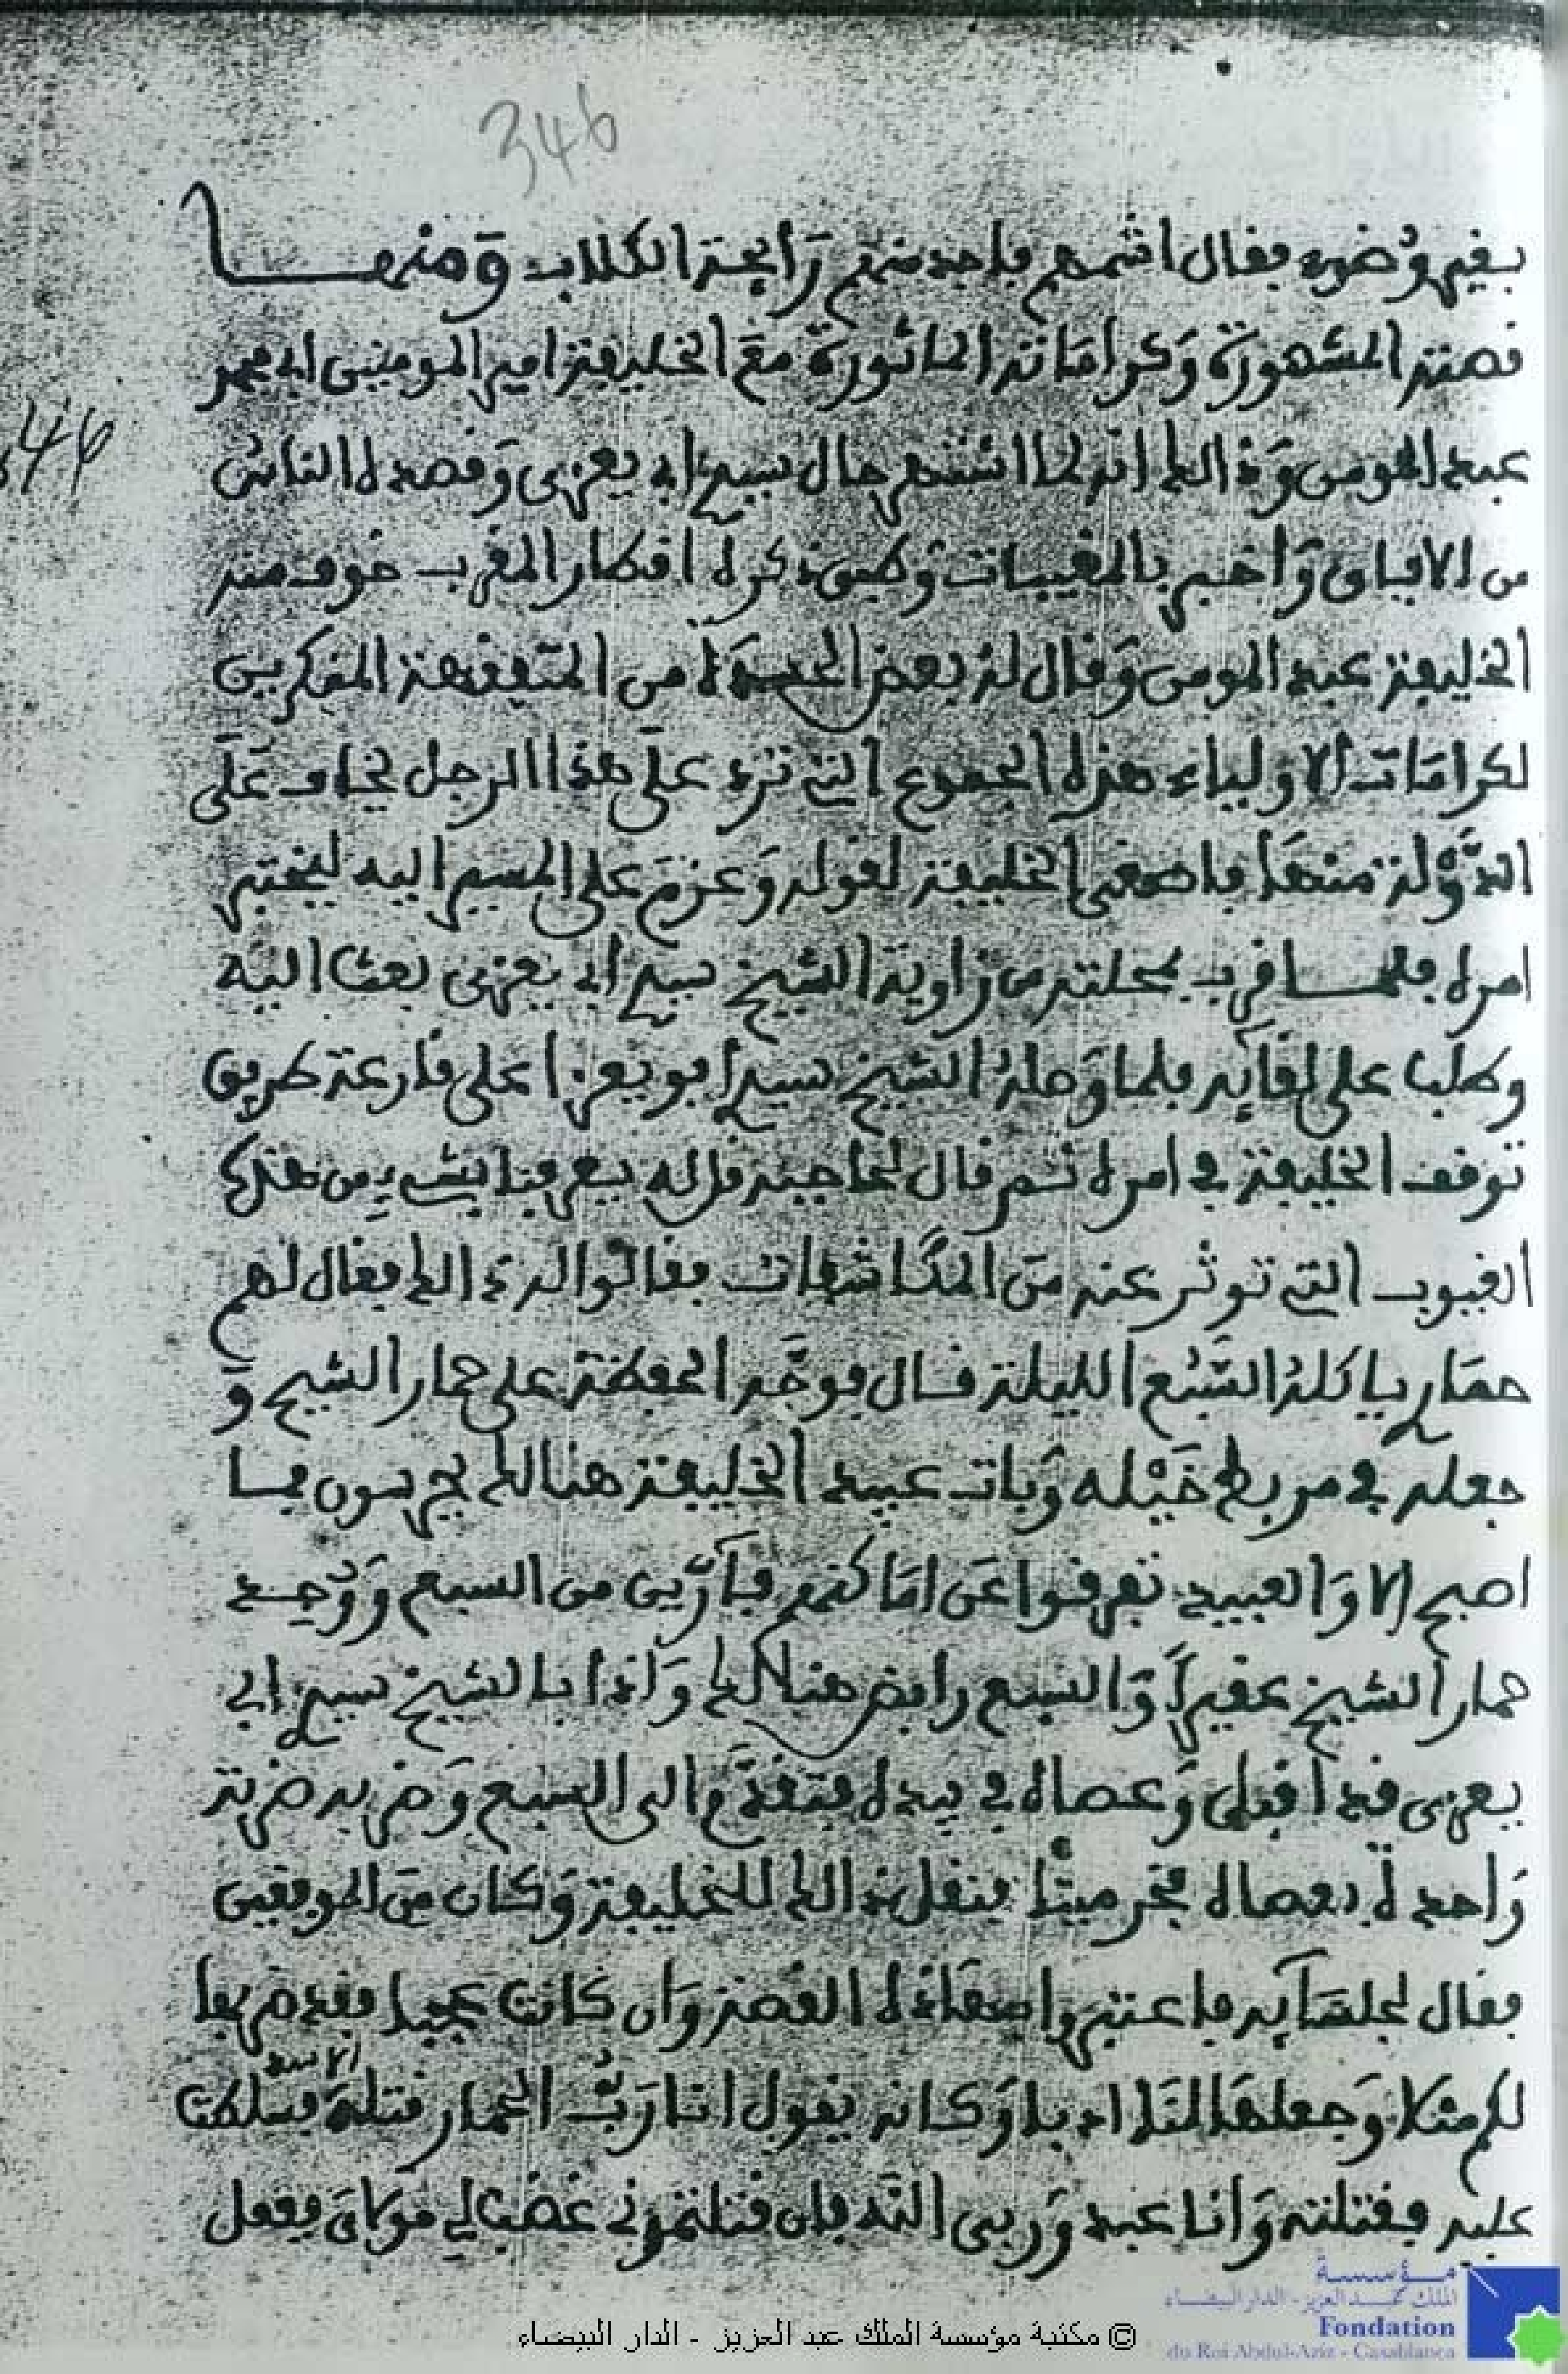 346
بغير وضوء فقال اشمم فاجد منهم رايحة الكلاب ومنها
قصته المشهورة وكراماته الماثورة مع الخليفة امير المومنين ابي محمد
عبد المومن وذالك انه لما اشتهر حال سيدي ابي يعزى وقصده الناس
من الافاق واخبر بالمغيبات وطبق ذكره اقطار المغرب خوف منه
الخليفة عبد المومن وقال له بعض الحسدة من المتفقهة المنكرين
لكرامات الاولياء هذه الجموع التي ترد على هذا الرجل يخاف على
الدولة منها فاصغى الخليفة لقوله وعزم على المسير اليه ليختبر
امره فلما قرب بمحلته من زاوية الشيخ سيدي ابي يعزى بعث اليه
وطلب على لقايه فلما وصله الشيخ سيدي ابو يعزا على قارعة طريق
توقف الخليفة في امره ثم قال لحاجبه قل له يعرفنا بشيء من هذه
الغيوب التي توثر عنه من المكاشفات فقالوا له ذالك فقال لهم
حماري ياكله السبع الليلة قال فوجه الحفظة على حمار الشيخ و
جعله في مربط خيله وبات عبيد الخليفة هنالك يحرسون فما
اصبح الا والعبيد تفرقوا عن اماكنهم فارين من السبع ووجد
حمار الشيخ عقيرا والسبع رابض هنالك واذا بالشيخ سيدي ابي
يعزى قد اقبل وعصاه في يده فتقدم الى السبع وضربه ضربة
واحدة بعصاه فخر ميتا فنقل ذالك للخليفة وكان من الموفقين
فقال لجلسايه ما عتبروا هذه القصة وان كانت عجبا فقد ضربها
لكم مثلا وجعلها لنا ادبا وكانه يقول انا رب الحمار قتله الاسد فسلطت
عليه فقتلته وانا عبد وربي الله فان قتلتموني غضب لي مولاي ففعل
446
مؤسسة
الملك عبد العزيز - الدار البيضاء
Fondation
du Roi Abdul-Aziz - Casablanca
© مكتبة مؤسسة الملك عبد العزيز - الدار البيضاء